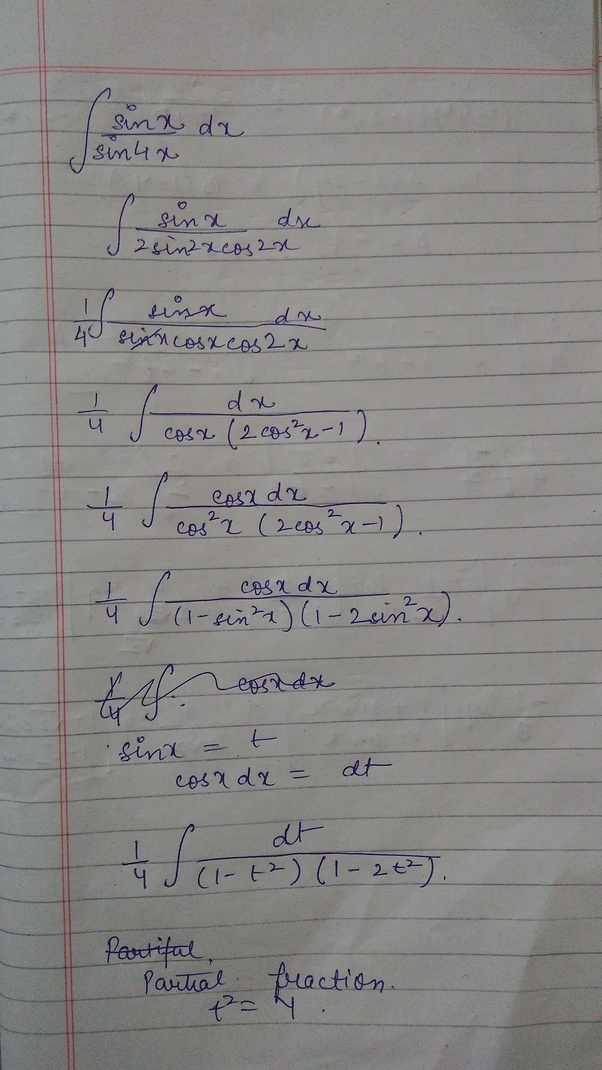 ∫ sinx/sin4x dx
∫ sinx/2sin2xcos2x dx
1/4 ∫ sinx dx/sinxcosxcos2x
1/4 ∫ dx/cosx (2cos²x-1).
1/4 ∫ cosx dx/cos²x (2cos²x-1).
1/4 ∫ cosx dx/(1-sin²x)(1-2sin²x).
1/4 ∫ cosxdx
sinx = t
cosx dx = dt
1/4 ∫ dt/(1-t²)(1-2t²).
Partiful,
Partial fraction.
t² = y.